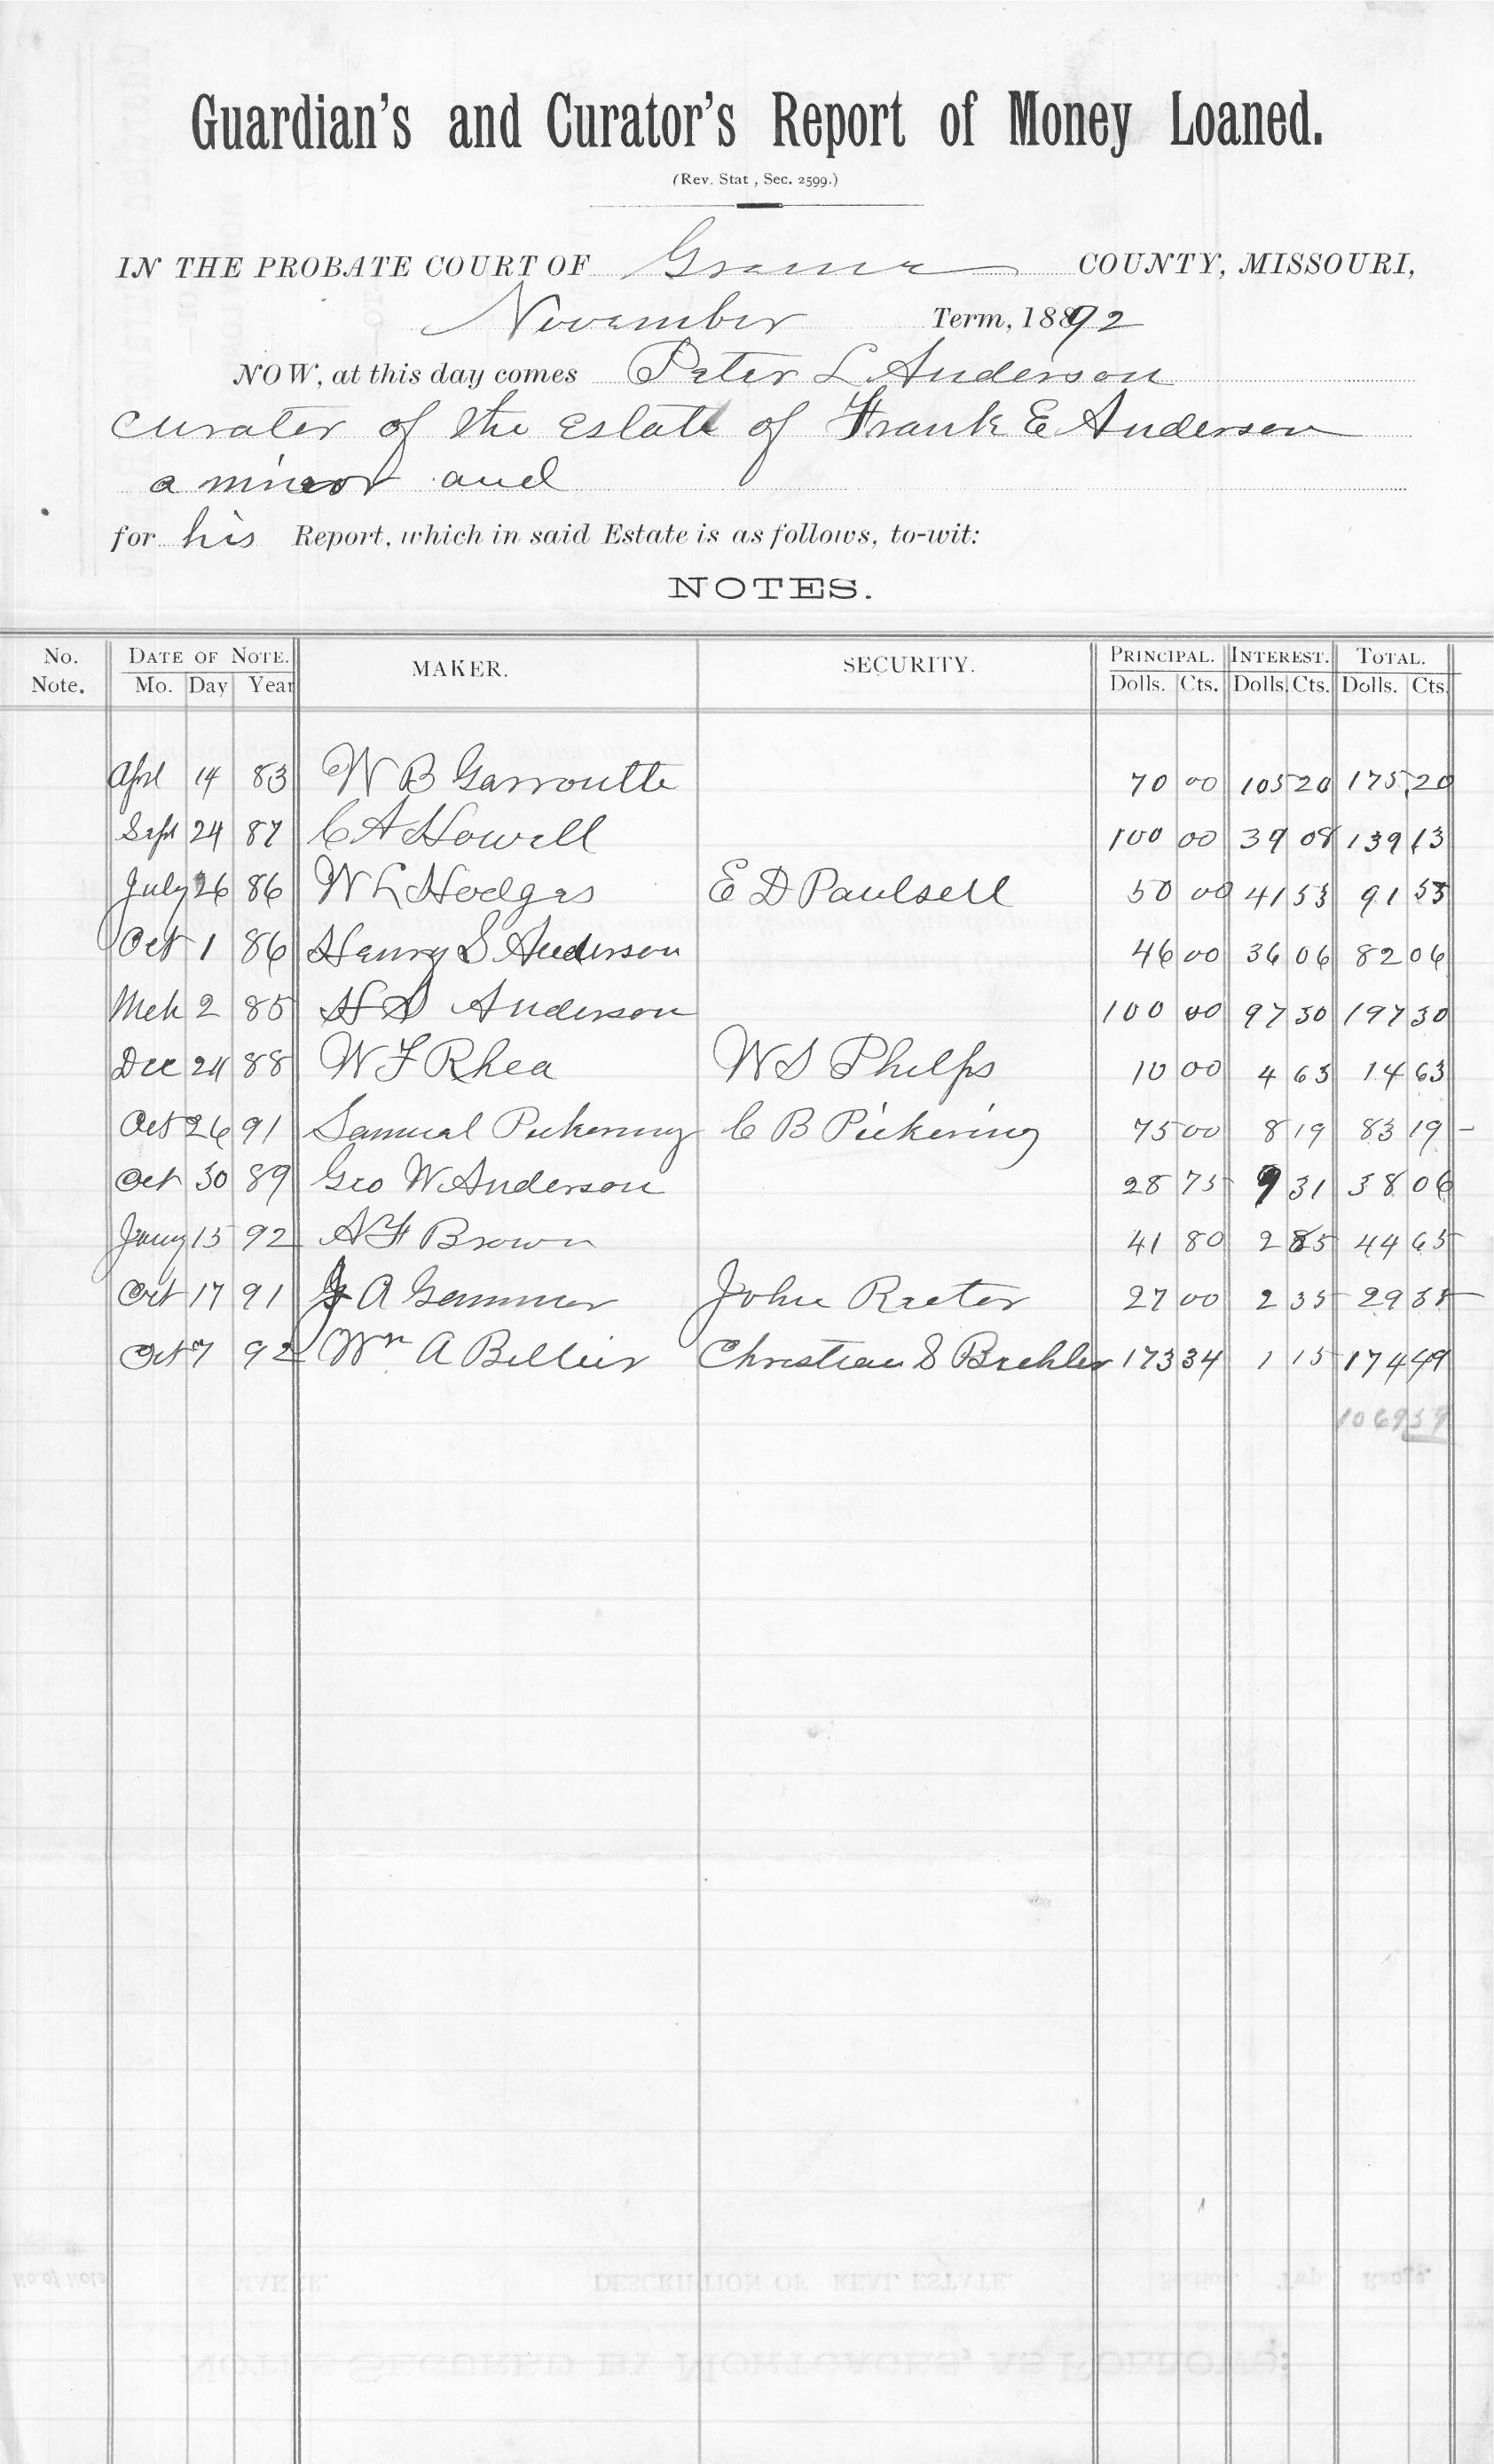 Guardian's and Curator's Report of Money Loaned.
(Rev. Stat , Sec. 2599.)
IN THE PROBATE COURT OF Greene COUNTY, MISSOURI,
November Term, 1892
NOW, at this day comes Peter L. Anderson
curater of the Estate of Frank E Anderson
a minor and
for his Report, which in said Estate is as follows, to-wit:
NOTES.
No. Note. DATE OF NOTE. Mo. Day Year MAKER. SECURITY. PRINCIPAL. Dolls. Cts. INTEREST. Dolls. Cts. TOTAL. Dolls. Cts.
Aprl 14 83 W B Garroutte 70 00 105 20 175 20
Sept 24 87 C A Howell 100 00 39 08 139 13
July 26 86 W L Hodges E D Paulsell 50 00 41 53 91 53
Oct 1 86 Henry S Anderson 46 00 36 06 82 06
Mch 2 85 H S Anderson 100 00 97 30 197 30
Dec 24 88 W F Rhea W S Phelps 10 00 4 63 14 63
Oct 26 91 Samual Pickering C B Pickering 75 00 8 19 83 19 -
Oct 30 89 Geo W Anderson 28 75 9 31 38 06
Jany 15 92 A F Brown 41 80 2 85 44 65
Oct 17 91 J A Gammer John Reeter 27 00 2 35 29 35
Oct 7 92 Wm A Bellier Christian S Brehler 173 34 1 15 174 49
1069 59